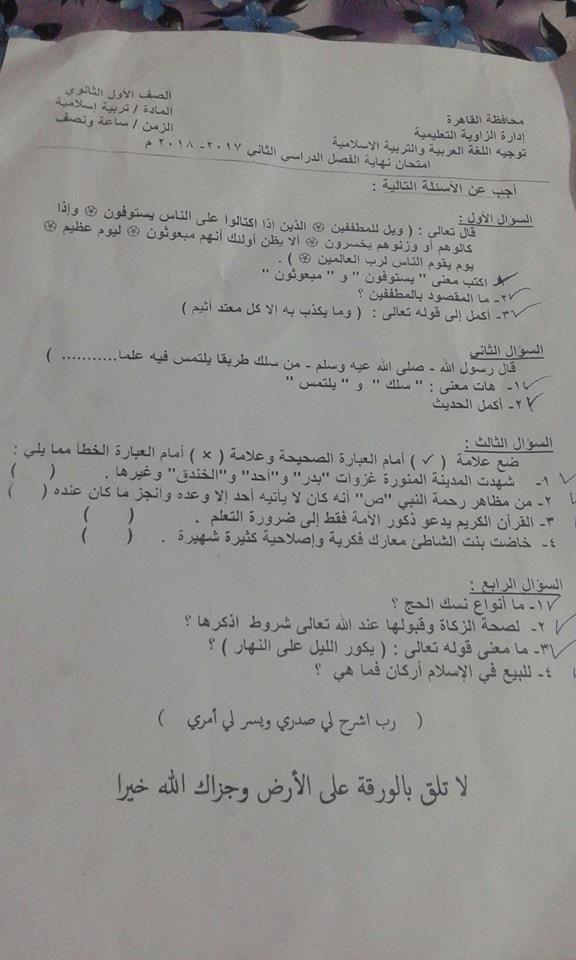 محافظة القاهرة
إدارة الزاوية التعليمية
توجيه اللغة العربية والتربية الإسلامية
الصف الأول الثانوي
المادة / تربية إسلامية
الزمن / ساعة ونصف
امتحان نهاية الفصل الدراسي الثاني ٢٠١٧- ٢٠١٨ م
أجب عن الأسئلة التالية :
السؤال الأول :
قال تعالى : ( ويل للمطففين ۞ الذين إذا اكتالوا على الناس يستوفون ۞ وإذا
كالوهم أو وزنوهم يخسرون ۞ ألا يظن أولئك أنهم مبعوثون ۞ ليوم عظيم ۞
يوم يقوم الناس لرب العالمين ۞ ) .
اكتب معنى " يستوفون " و " مبعوثون "
٢- ما المقصود بالمطففين ؟
٣- أكمل إلى قوله تعالى : ( وما يكذب به إلا كل معتد أثيم )
السؤال الثاني
قال رسول الله - صلى الله عيه وسلم - من سلك طريقا يلتمس فيه علما........... )
١- هات معنى : " سلك " و " يلتمس "
٢- أكمل الحديث
السؤال الثالث :
ضع علامة ( ✓ ) أمام العبارة الصحيحة وعلامة ( × ) أمام العبارة الخطأ مما يلي :
١- شهدت المدينة المنورة غزوات "بدر" و"أحد" و"الخندق" وغيرها . ( )
٢- من مظاهر رحمة النبي "ص" أنه كان لا يأتيه أحد إلا وعده وأنجز ما كان عنده ( )
٣- القرآن الكريم يدعو ذكور الأمة فقط إلى ضرورة التعلم . ( )
٤- خاضت بنت الشاطئ معارك فكرية وإصلاحية كثيرة شهيرة . ( )
السؤال الرابع :
١- ما أنواع نسك الحج ؟
٢- لصحة الزكاة وقبولها عند الله تعالى شروط اذكرها ؟
٣- ما معنى قوله تعالى : ( يكور الليل على النهار ) ؟
٤- للبيع في الإسلام أركان فما هي ؟
( رب اشرح لي صدري ويسر لي أمري )
لا تلق بالورقة على الأرض وجزاك الله خيرا